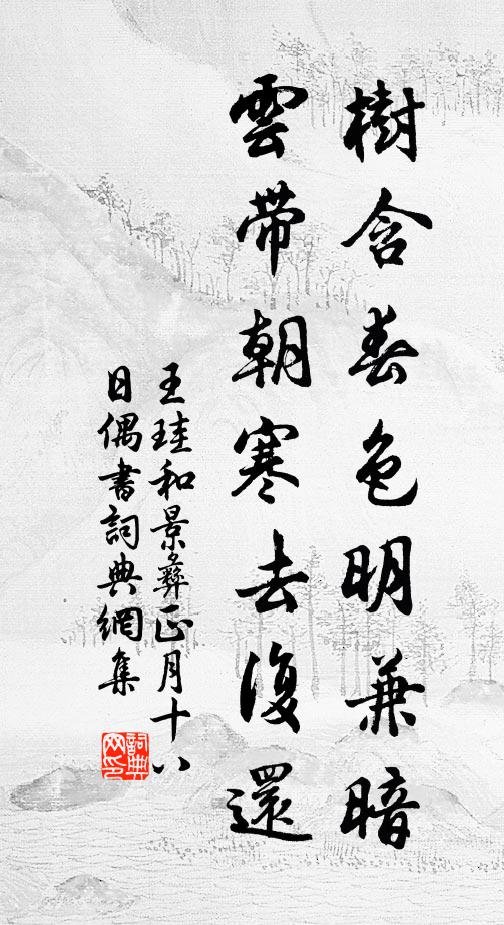 樹含春色明兼暗
雲帶朝寒去復還
王珪和景彝正月十八
日偶書詞典網集
詞典
网印